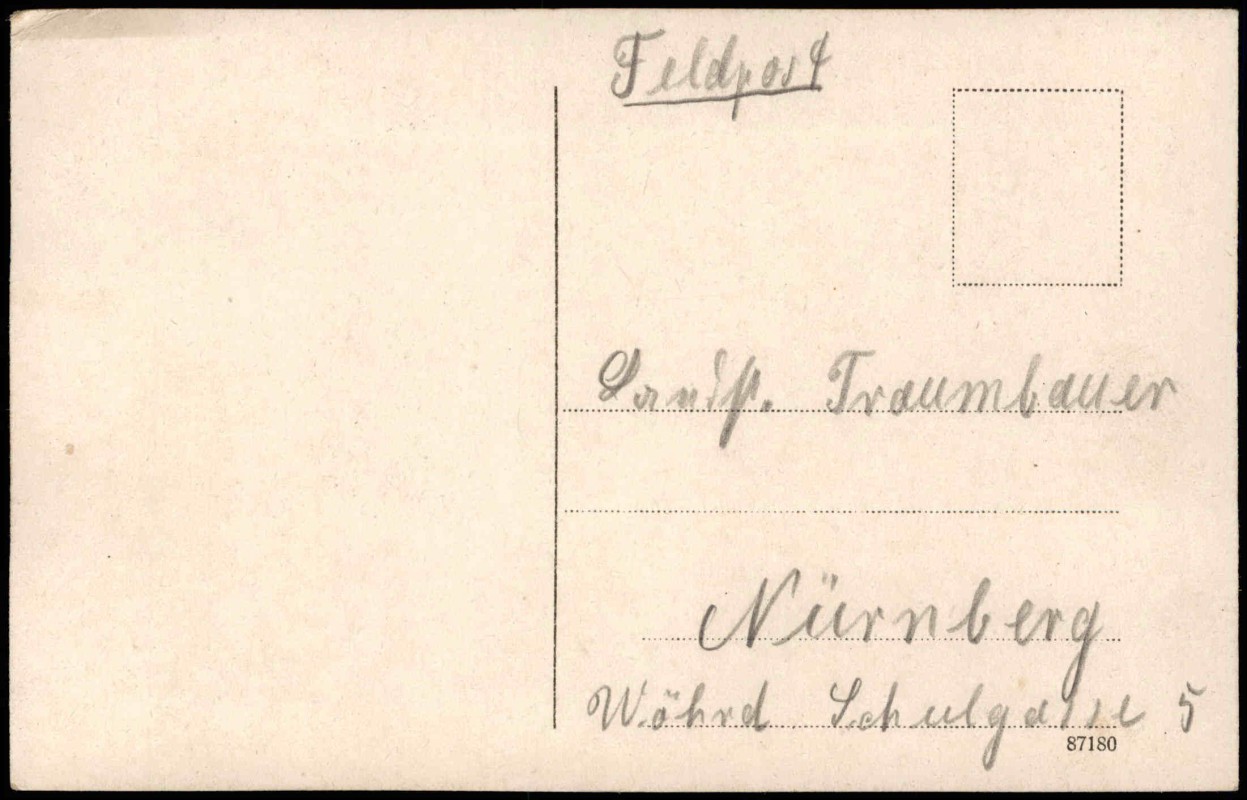 Feldpost
Landst. Traumbauer
Nürnberg
Wöhrd Schulgasse 5
87180